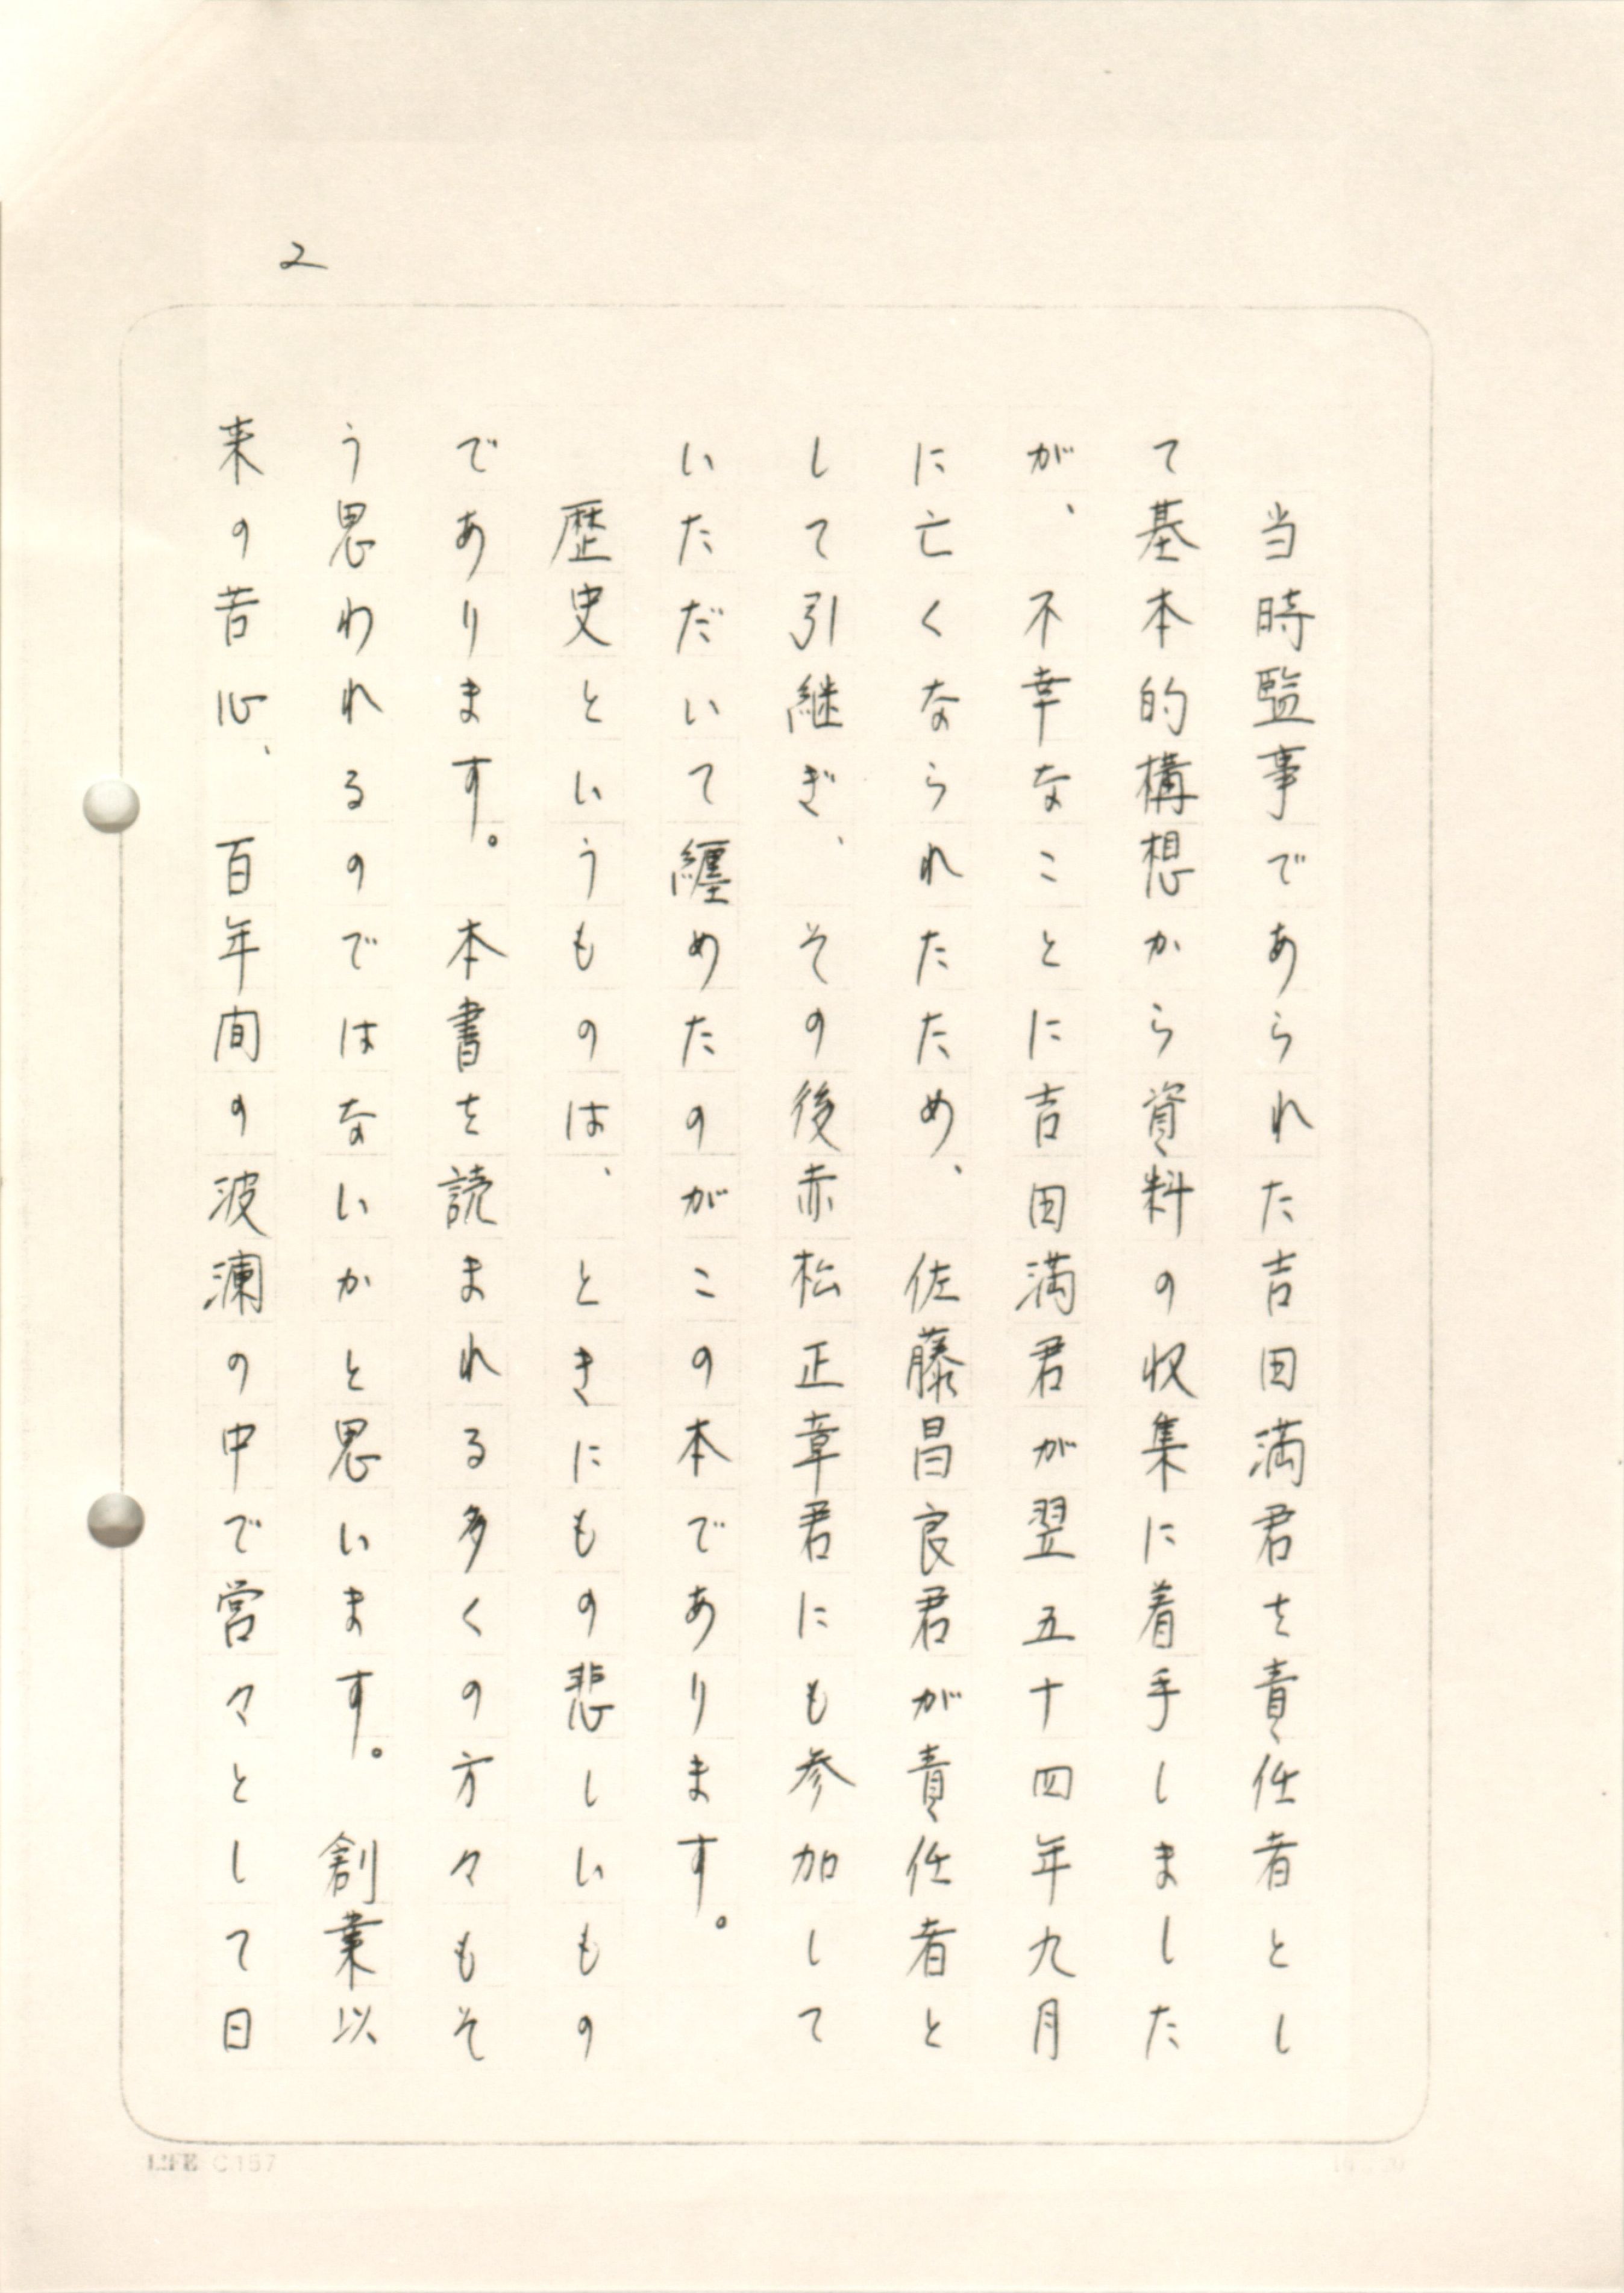 2
当時監事であられた吉田満君を責任者とし
て基本的構想から資料の収集に着手しました
が、不幸なことに吉田満君が翌五十四年九月
に亡くなられたため、佐藤昌良君が責任者と
して引継ぎ、その後赤松正章君にも参加して
いただいて纒めたのがこの本であります。
歴史というものは、ときにもの悲しいもの
であります。本書を読まれる多くの方々もそ
う思われるのではないかと思います。創業以
来の苦心、百年間の波瀾の中で営々として日
LIFE C157